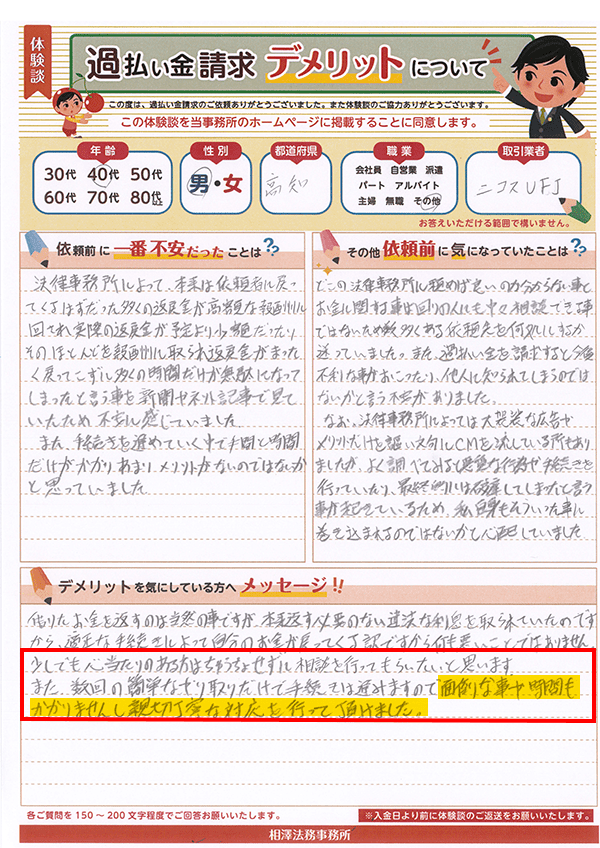 体験談
過払い金請求 デメリットについて
この度は、過払い金請求のご依頼ありがとうございました。また体験談のご協力ありがとうございます。
この体験談を当事務所のホームページに掲載することに同意します。
年齢
30代 40代 50代
60代 70代 80代以上
性別
男・女
都道府県
高知
職業
会社員 自営業 派遣
パート アルバイト
主婦 無職 その他
取引業者
ニコスUFJ
お答えいただける範囲で構いません。
依頼前に一番不安だったことは??
法律事務所によって、本来は依頼者に戻っ
てくるはずだった多くの返戻金が高額な報酬に
回されて実際の返戻金が予定より少額だったり
そのほとんどを報酬に取られ返戻金がまった
く戻ってこずに多くの時間だけが無駄になって
しまったと言う事を新聞やネット記事で見て
いたため不安に感じていました。
また、手続きを進めていく中で手間と時間
だけがかかり、あまりメリットがないのではないか
と思っていました
その他依頼前に気になっていたことは??
どこの法律事務所に頼めば良いのか分からない事と
お金に関する事は回りの人にも中々相談できる事
ではないため数多くある依頼先を何処にするか
迷っていました。また、過払い金を請求すると今後
不利な事がおこったり、他人に知られてしまうのでは
ないかと言う不安がありました。
なお、法律事務所によっては大袈裟な広告や
メリットだけを謳い文句にCMを流している所もあり
ましたが、よく調べてみると悪質な行為や手続きを
行っていたり、最終的には破産してしまったと言う
事が起きているため、私自身もそういった事に
巻き込まれるのではないかと心配していました
デメリットを気にしている方へメッセージ!!
借りたお金を返すのは当然の事ですが、本来返す必要のない違法な利息を取られていたのです
から、適正な手続きによって自分のお金が戻ってくる訳ですから何も悪いことではありません
少しでも心当たりのある方はちゅうちょせずに相談を行ってもらいたいと思います
また、数回の簡単なやり取りだけで手続きは進みますので面倒な事や時間も
かかりませんし親切丁寧な対応を行って頂けました。
各ご質問を150～200文字程度でご回答お願いいたします。
※入金日より前に体験談のご返送をお願いいたします。
相澤法務事務所